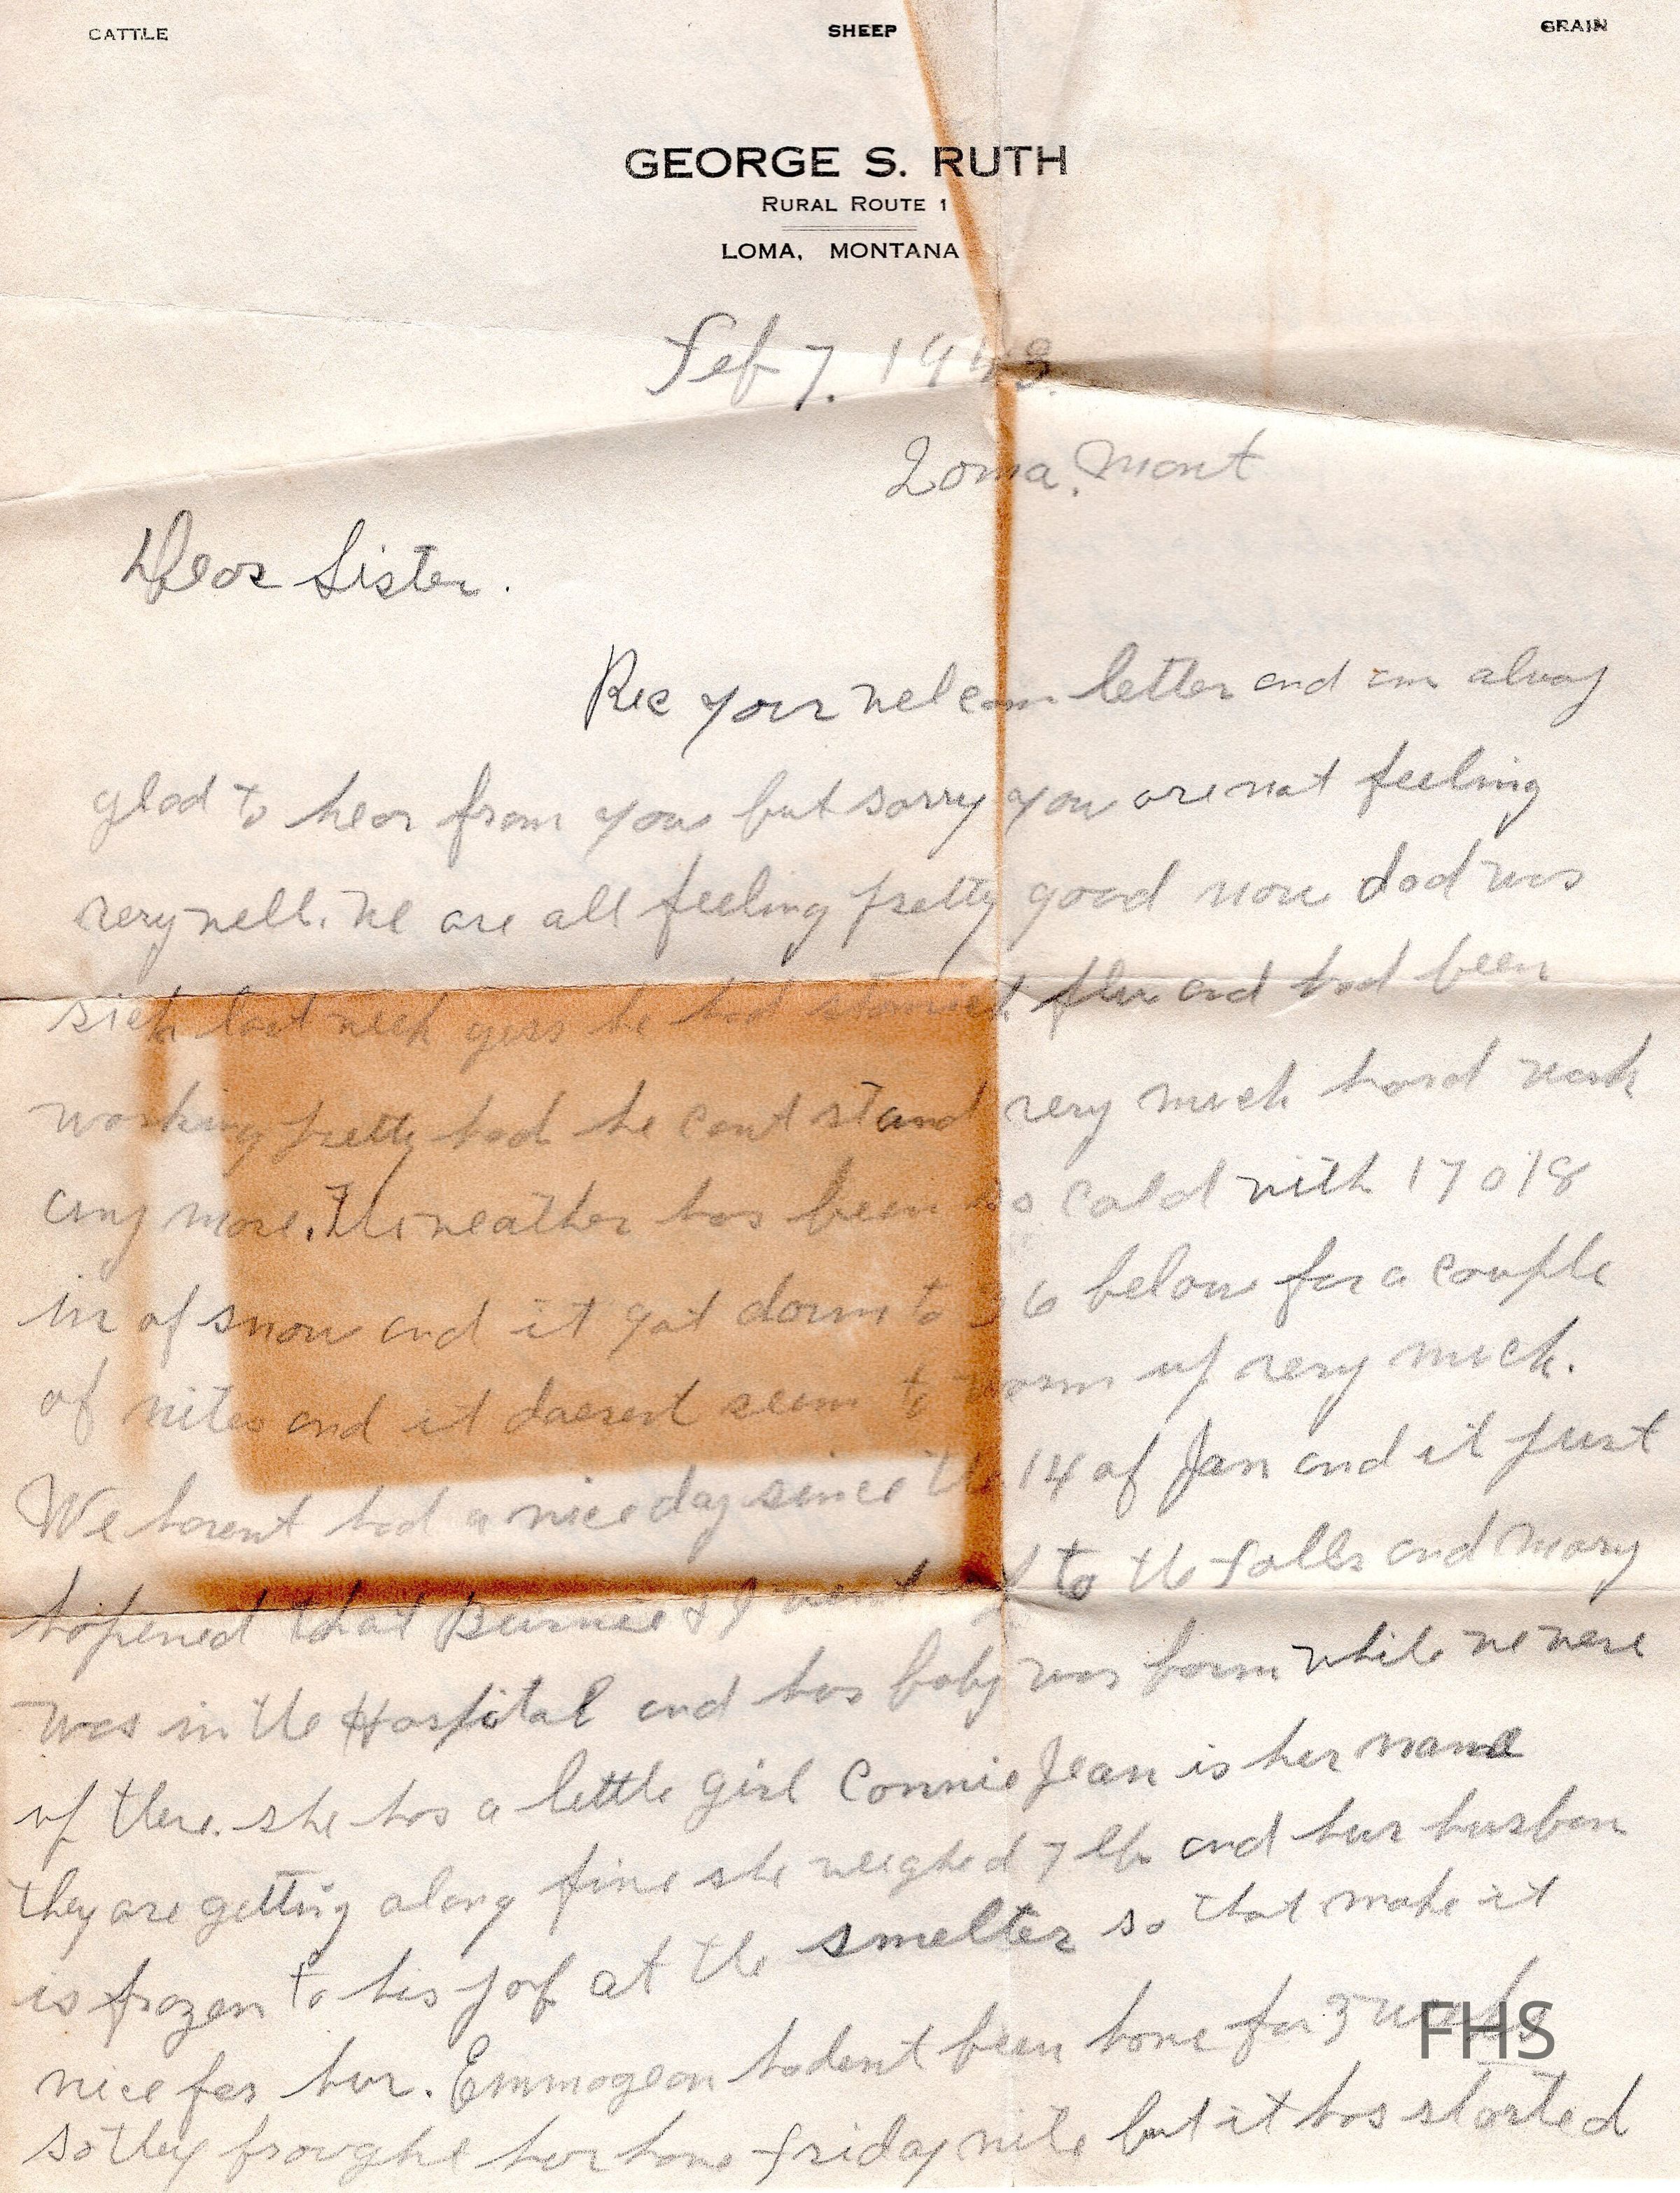 CATTLE SHEEP GRAIN
GEORGE S. RUTH
RURAL ROUTE 1
LOMA, MONTANA
Feb 7. 1943.
Loma, Mont
Dear Sister.
Rec your welcom letter and am alway
glad to hear from you but sorry you are not feeling
very well. We are all feeling pretty good now dad was
sick last week gess he had stomach flu and had been
working pretty hard he cant stand very much hard work
any more. The weather has been so cold with 17 o 18
in of snow and it got down to 6 below for a couple
of nites and it doesent seem to warm up very much.
We havent had a nice day since the 14 of Jan and it just
hapened that Burnie & I went up to the Falls and Mary
was in the Hospital and has baby was born while we were
up there. she has a little girl Connie Jean is her name
they are getting along fine she weighed 7 lb and her husban
is frozen to his job at the smelter so that make it
nice for her. Emmogean hadent been home for 3 weeks
so they broughe her home Friday nite but it has started
FHS